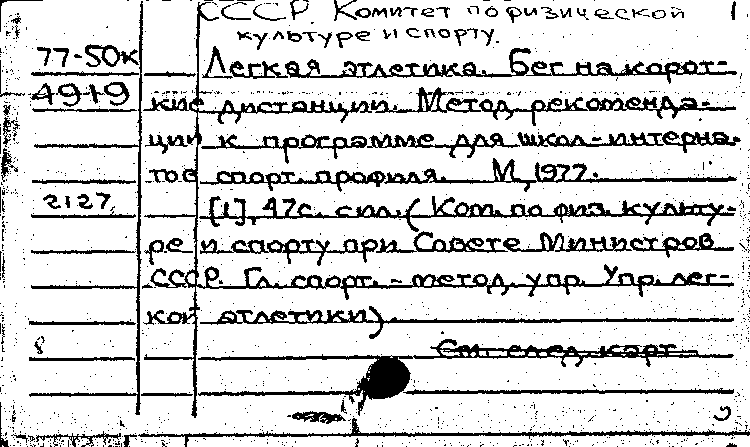 СССР. Комитет по физической 1
культуре и спорту.
77-50к Легкая атлетика. Бег на корот-
4919 кие дистанции. Метод. рекоменда-
ции к программе для школ-интерна-
тов спорт. профиля. М., 1977.
2127 [1], 47с. с ил. (Ком. по физ. культу-
ре и спорту при Совете Министров
СССР. Гл. спорт.-метод. упр. Упр. лег-
кой атлетики).
8 См. след. карт.